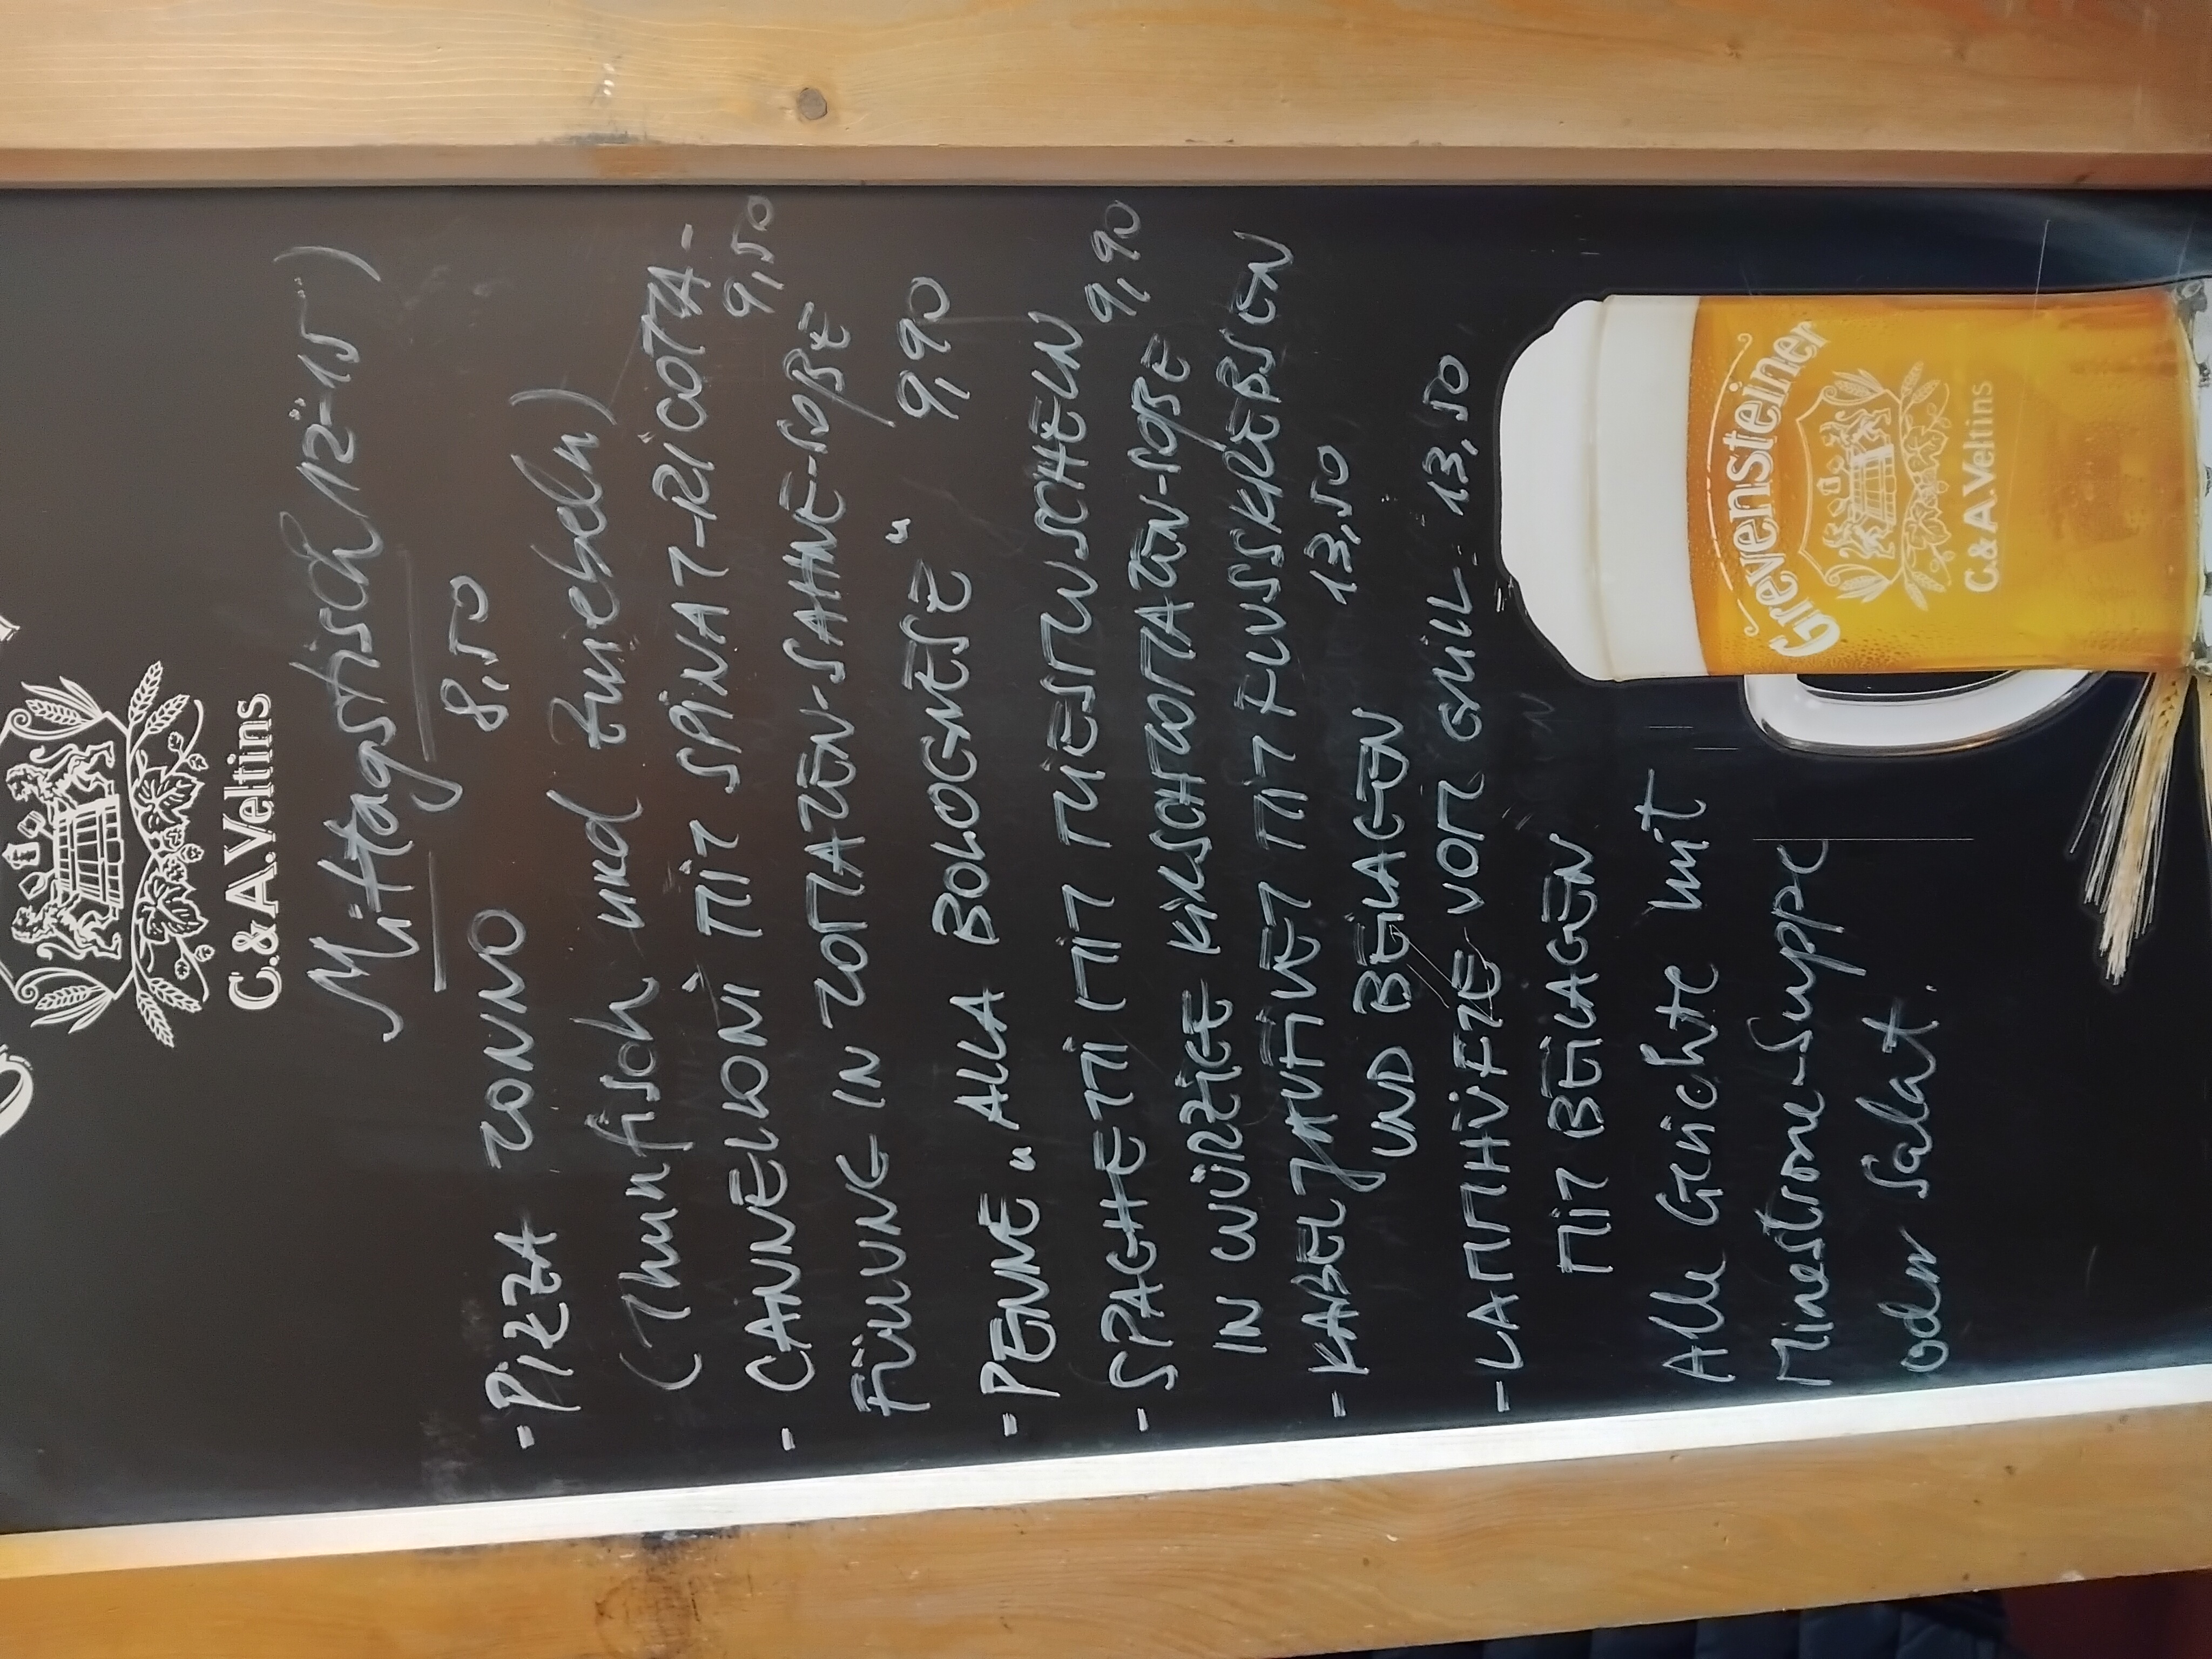 C. & A. Veltins
Mittagstisch (12°°-15°°)
- PIZZA TONNO 8,50
(Thunfisch und Zwiebeln)
- CANNELLONI MIT SPINAT-RICOTTA-
FÜLLUNG IN TOMATEN-SAHNE-SOßE 9,50
- PENNE "ALLA BOLOGNESE" 9,90
- SPAGHETTI MIT MIESMUSCHELN
IN WÜRZIGE KIRSCHTOMATEN-SOßE 9,90
- KABELJAUFILET MIT FLUSSKREBSEN
UND BEILAGEN 13,50
- LAMMHÜFTE VOM GRILL 13,50
MIT BEILAGEN
Alle Gerichte mit
Minestrone-Suppe
oder Salat.
Grevensteiner
C. & A. Veltins